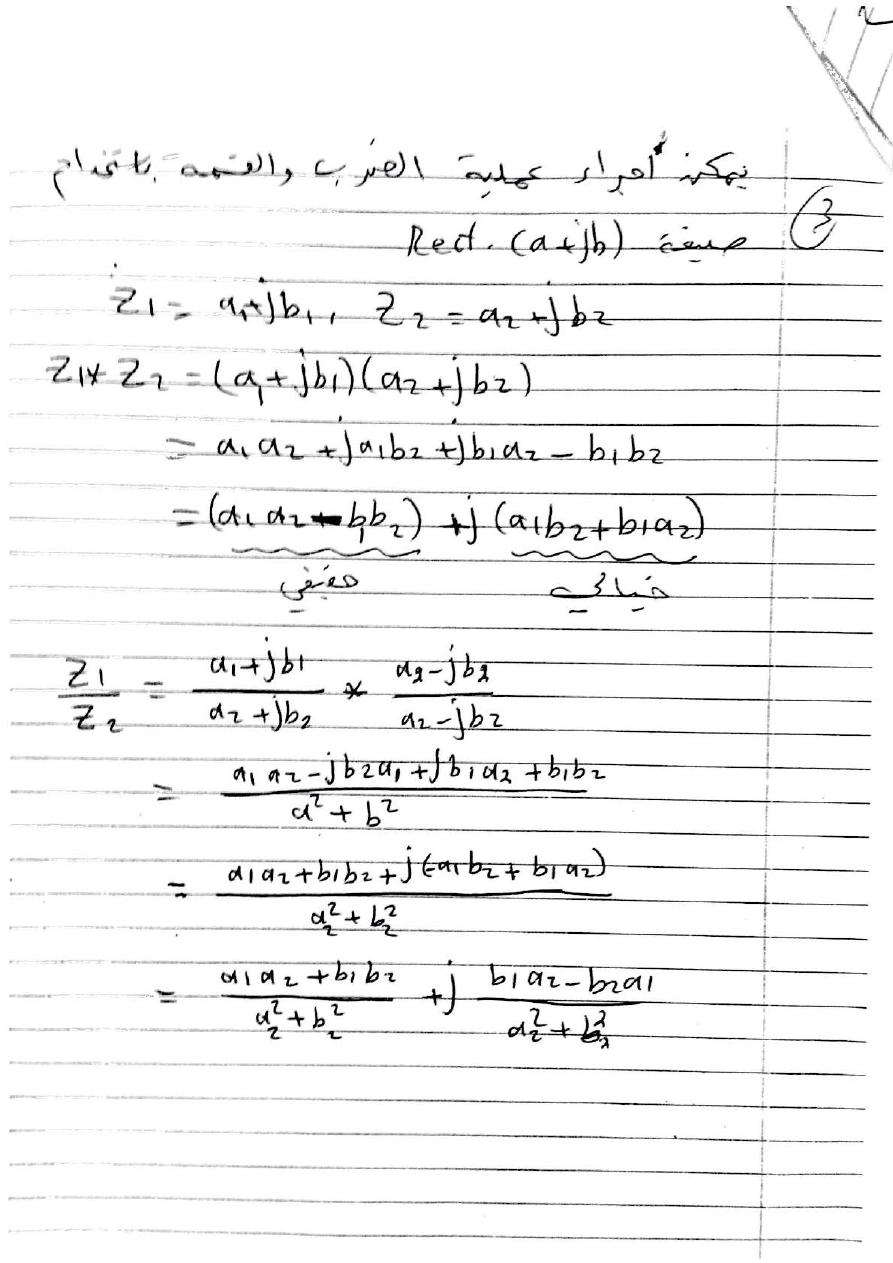 يمكن أجراء عملية الضرب والقسمه باستخدام
③ صيغة Rect. (a+jb)
Z1 = a1+jb1, Z2 = a2+jb2
Z1* Z2 = (a1+jb1)(a2+jb2)
= a1a2 + ja1b2 + jb1a2 - b1b2
= (a1a2 - b1b2) + j (a1b2 + b1a2)
حقيقي خيالي
Z1/Z2 = (a1+jb1)/(a2+jb2) * (a2-jb2)/(a2-jb2)
= (a1a2 - jb2a1 + jb1a2 + b1b2)/(a² + b²)
= (a1a2 + b1b2 + j(-a1b2 + b1a2))/(a2² + b2²)
= (a1a2 + b1b2)/(a2² + b2²) + j (b1a2 - b2a1)/(a2² + b2²)